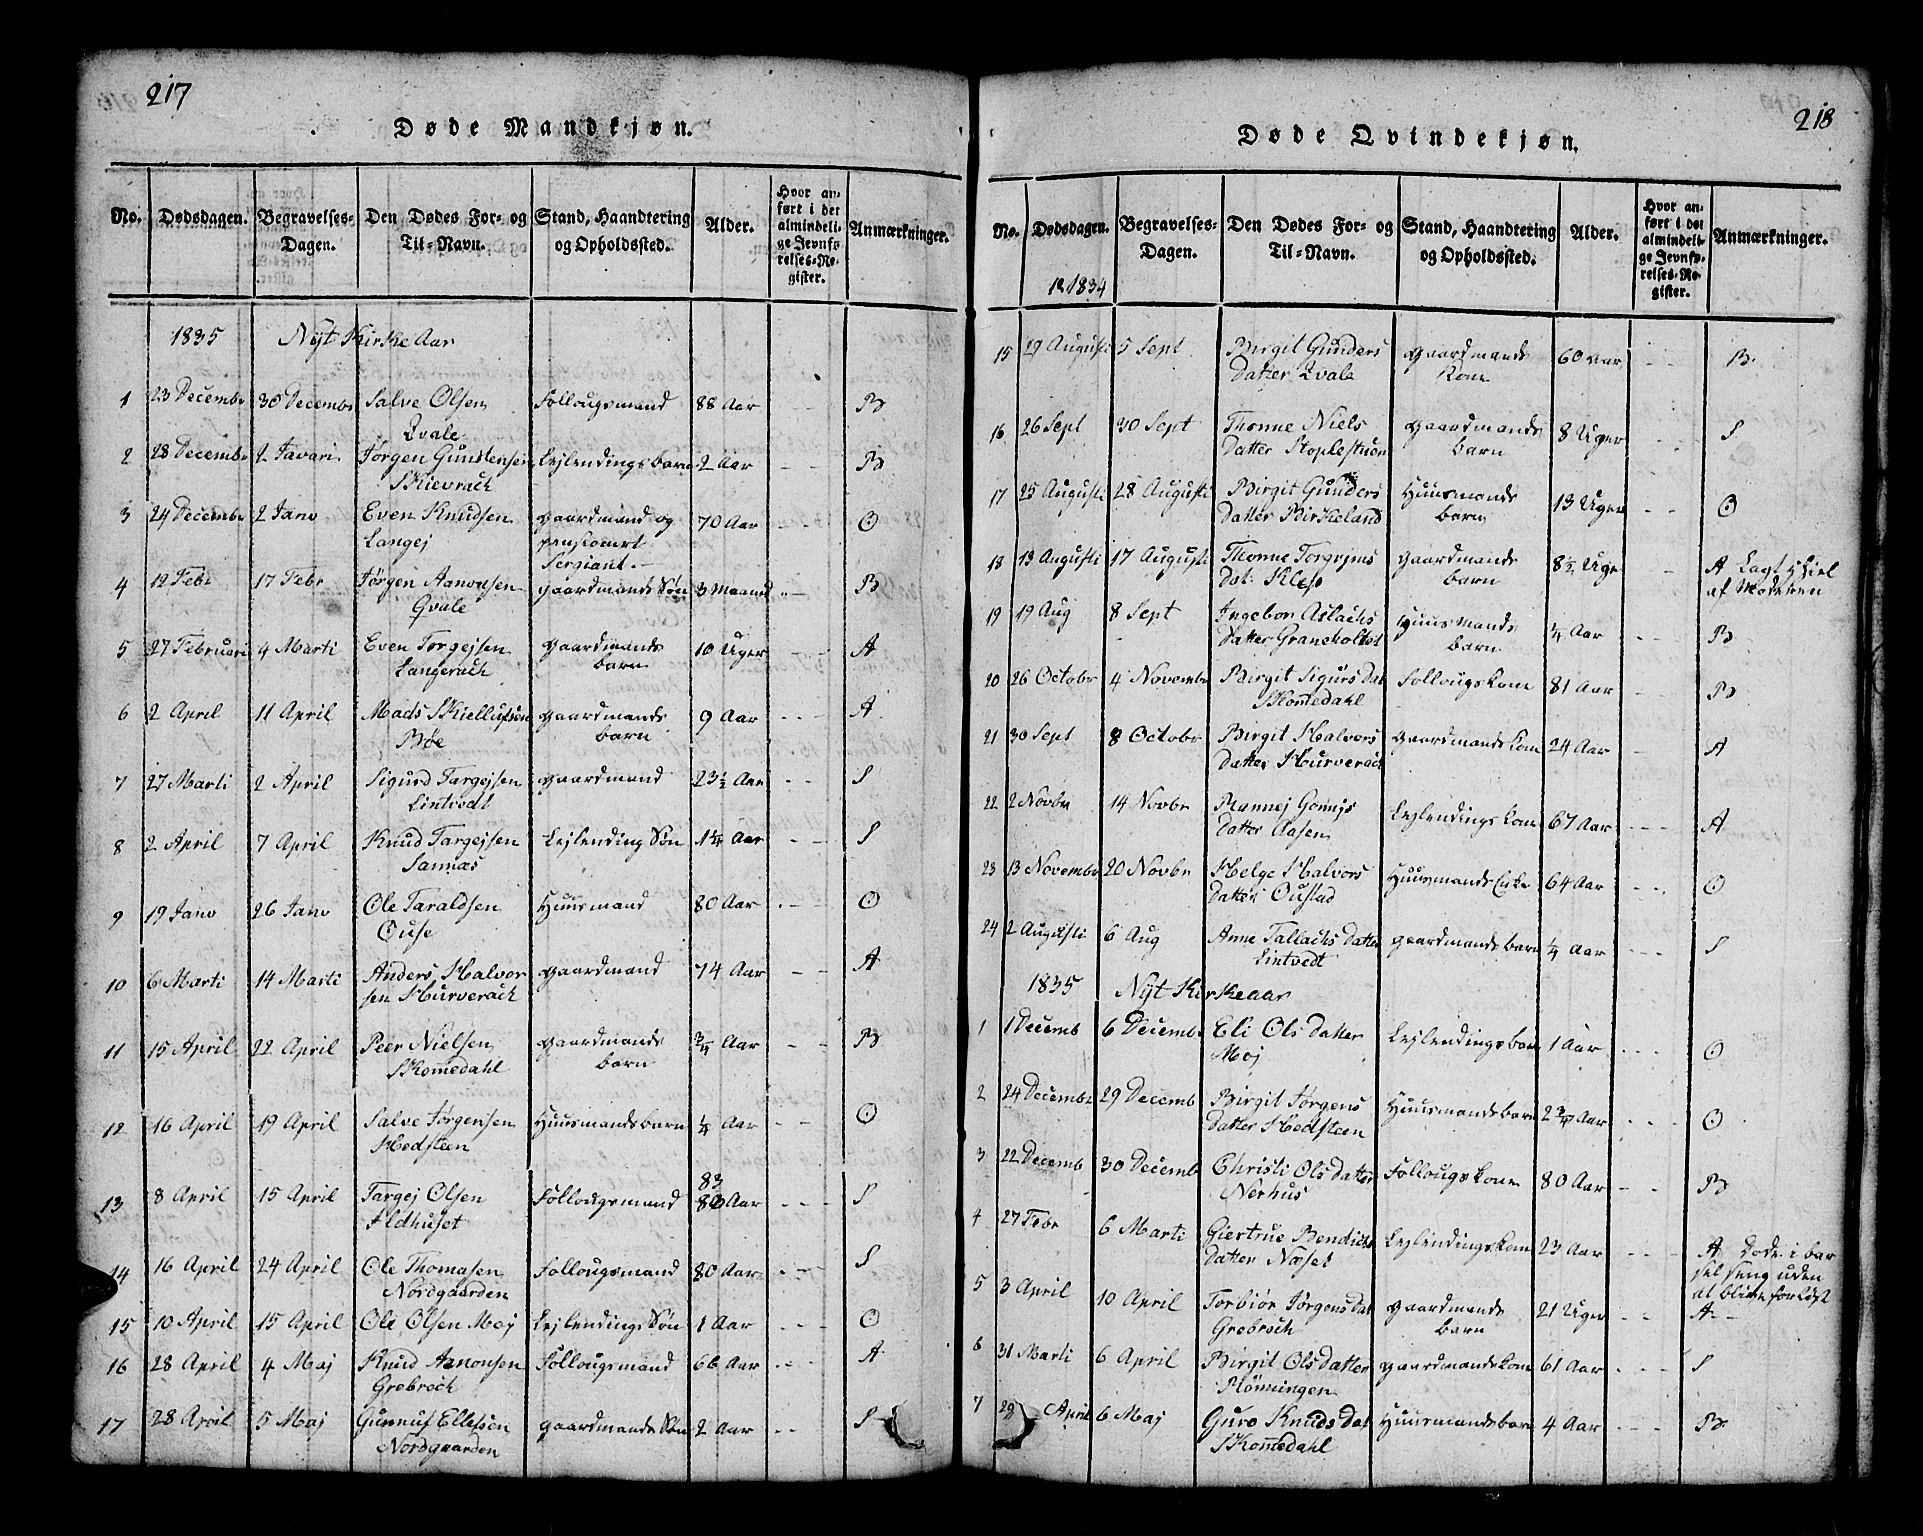 217
Døde Mandkjøn.
No. Dødsdagen. Begravelses-Dagen. Den Dødes For- og Til-Navn. Stand, Haandtering og Opholdssted. Alder. Hvor anført i det almindelige Jevnførelses-Register. Anmærkninger.
1835 Nyt Kirke Aar
1 23 Decembr 30 Decembr Salve Olsen Follougsmand 88 Aar - - B
Qvale
2 28 Decembr 2 Javari Jørgen Gunstensen Lejlendings barn 2 Aar - - B
Skievrach
3 24 Decembr 2 Janv Even Knudsen gaardmand og 70 Aar - - O
Langej pensioneret
Sergiant. -
4 12 Febr 17 Febr Jørgen Aanonsen gaardmands Søn 3 Maaned - - B
Qvale
5 27 Februari 4 Marti Even Torgejsen gaardmands 10 Uger - - A
Langerach barn
6 2 April 11 April Mads Skiellufsen gaardmands 9 Aar - - - A
Bøe barn
7 27 Marti 2 April Sigurd Targejsen gaardmand 23½ Aar - - S
Lintvedt
8 2 April 7 April Knud Targejsen Lejlending Søn 1¼ Aar - - S
Sannæs
9 19 Janv 26 Janv Ole Taraldsen Huusmand 80 Aar - - O
Ouse
10 6 Marti 14 Marti Anders Halvor gaardmand 74 Aar - - A
sen Hurverach
11 15 April 22 April Peer Nielsen gaardmands ¾ Aar - - B
Skomedahl barn
12 16 April 19 April Salve Jørgensen Huusmands barn ¼ Aar - - O
Hedsteen
13 8 April 15 April Targej Olsen Follougsmand 83 Aar - - - S
Ildhuset
14 16 April 24 April Ole Thomasen Follougsmand 80 Aar - - - S
Nordgaarden
15 10 April 15 April Ole Olsen Moj Lejlendings Søn 1 Aar - - - O
16 28 April 4 Maj Knud Aanonsen Follougsmand 66 Aar - - A
Grebroch
17 28 April 5 Maj Gunnuf Ellefsen gaardmands Søn 2 Aar - - S
Nordgaarden
218
Døde Qvindekjøn.
No. Dødsdagen. Begravelses-Dagen. Den Dødes For- og Til-Navn. Stand, Haandtering og Opholdssted. Alder. Hvor anført i det almindelige Jevnførelses-Register. Anmærkninger.
1834
15 29 Augusti 5 Sept Birgit Gunders gaardmands 60 Aar - - B.
datter Qvale Kone
16 26 Sept 30 Sept Thonne Niels gaardmands 8 Uger - - S
datter Stoplestuen barn
17 25 Augusti 28 Augusti Birgit Gunders Huusmands 13 Uger - - O
datter Birkeland barn
18 13 Augusti 17 Augusti Thonne Torgrjms gaardmands 8½ Uge - A Lagt ihiel
dat. Klep barn af Moderen
19 19 Aug 8 Sept Ingebor Aslachs Huusmands ¼ Aar - - B
datter Graneholtet barn
20 26 Octobr 4 Novembr Birgit Sigurs dat Follougs kone 81 Aar - - B
Skomedahl
21 30 Sept 8 Octobr Birgit Halvors gaardmands kone 24 Aar - A
datter Hurverach
22 2 Novbr 14 Novbr Rannej Gonnjs Lejlendings kone 67 Aar - - - A
datter Aasen
23 13 Novembr 20 Novbr Helge Halvors Huusmands Enke 64 Aar - - O
datter Oustad
24 2 Augusti 6 Aug Anne Tallachs datter gaardmands barn ¼ Aar - - - S
Lintvedt
1835 Nyt Kirkeaar
1 1 Decemb 6 Decembr Eli Ols datter Lejlendings barn 1 Aar - - - O
Moj
2 24 Decembr 29 Decemb Birgit Jørgens Huusmands barn 2¾ Aar - - O
datter Hedsteen
3 22 Decemb 30 Decemb Christi Ols datter Follougs kone 80 Aar - - B
Nerhus
4 27 Febr 6 Marti Giertrue Bendichs Lejlendings kone 23 Aar - - - A Døde i bar
datter Næset sel seng uden
at blive forløst
5 3 April 10 April Torbiør Jørgens dat gaardmands 21 Uger - - A - -
Grebroch barn
6 31 Marti 6 April Birgit Ols datter gaardmands kone 61 Aar - - - S
Rönningen
7 29 April 6 Maj Guro Knuds dat Huusmands barn 4 Aar - - - B
Skomedahl